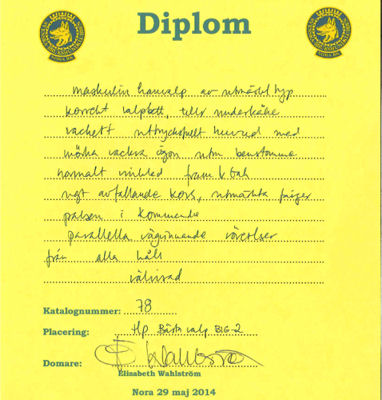 Diplom
maskulin hanvalp av utmärkt typ
korrekt valpbett, tillr underkäke
vackert uttrycksfullt huvud med
mörka vackra ögon utm benstomme
normalt vinklad fram & bak
ngt avfallande kors, utmärkta
pälsen i kommande
parallella vägvinnande rörelser
från alla håll
välvisad
Katalognummer: 78
Placering: Hp Bästa valp BIG-2
Domare:
Elisabeth Wahlström
Nora 29 maj 2014